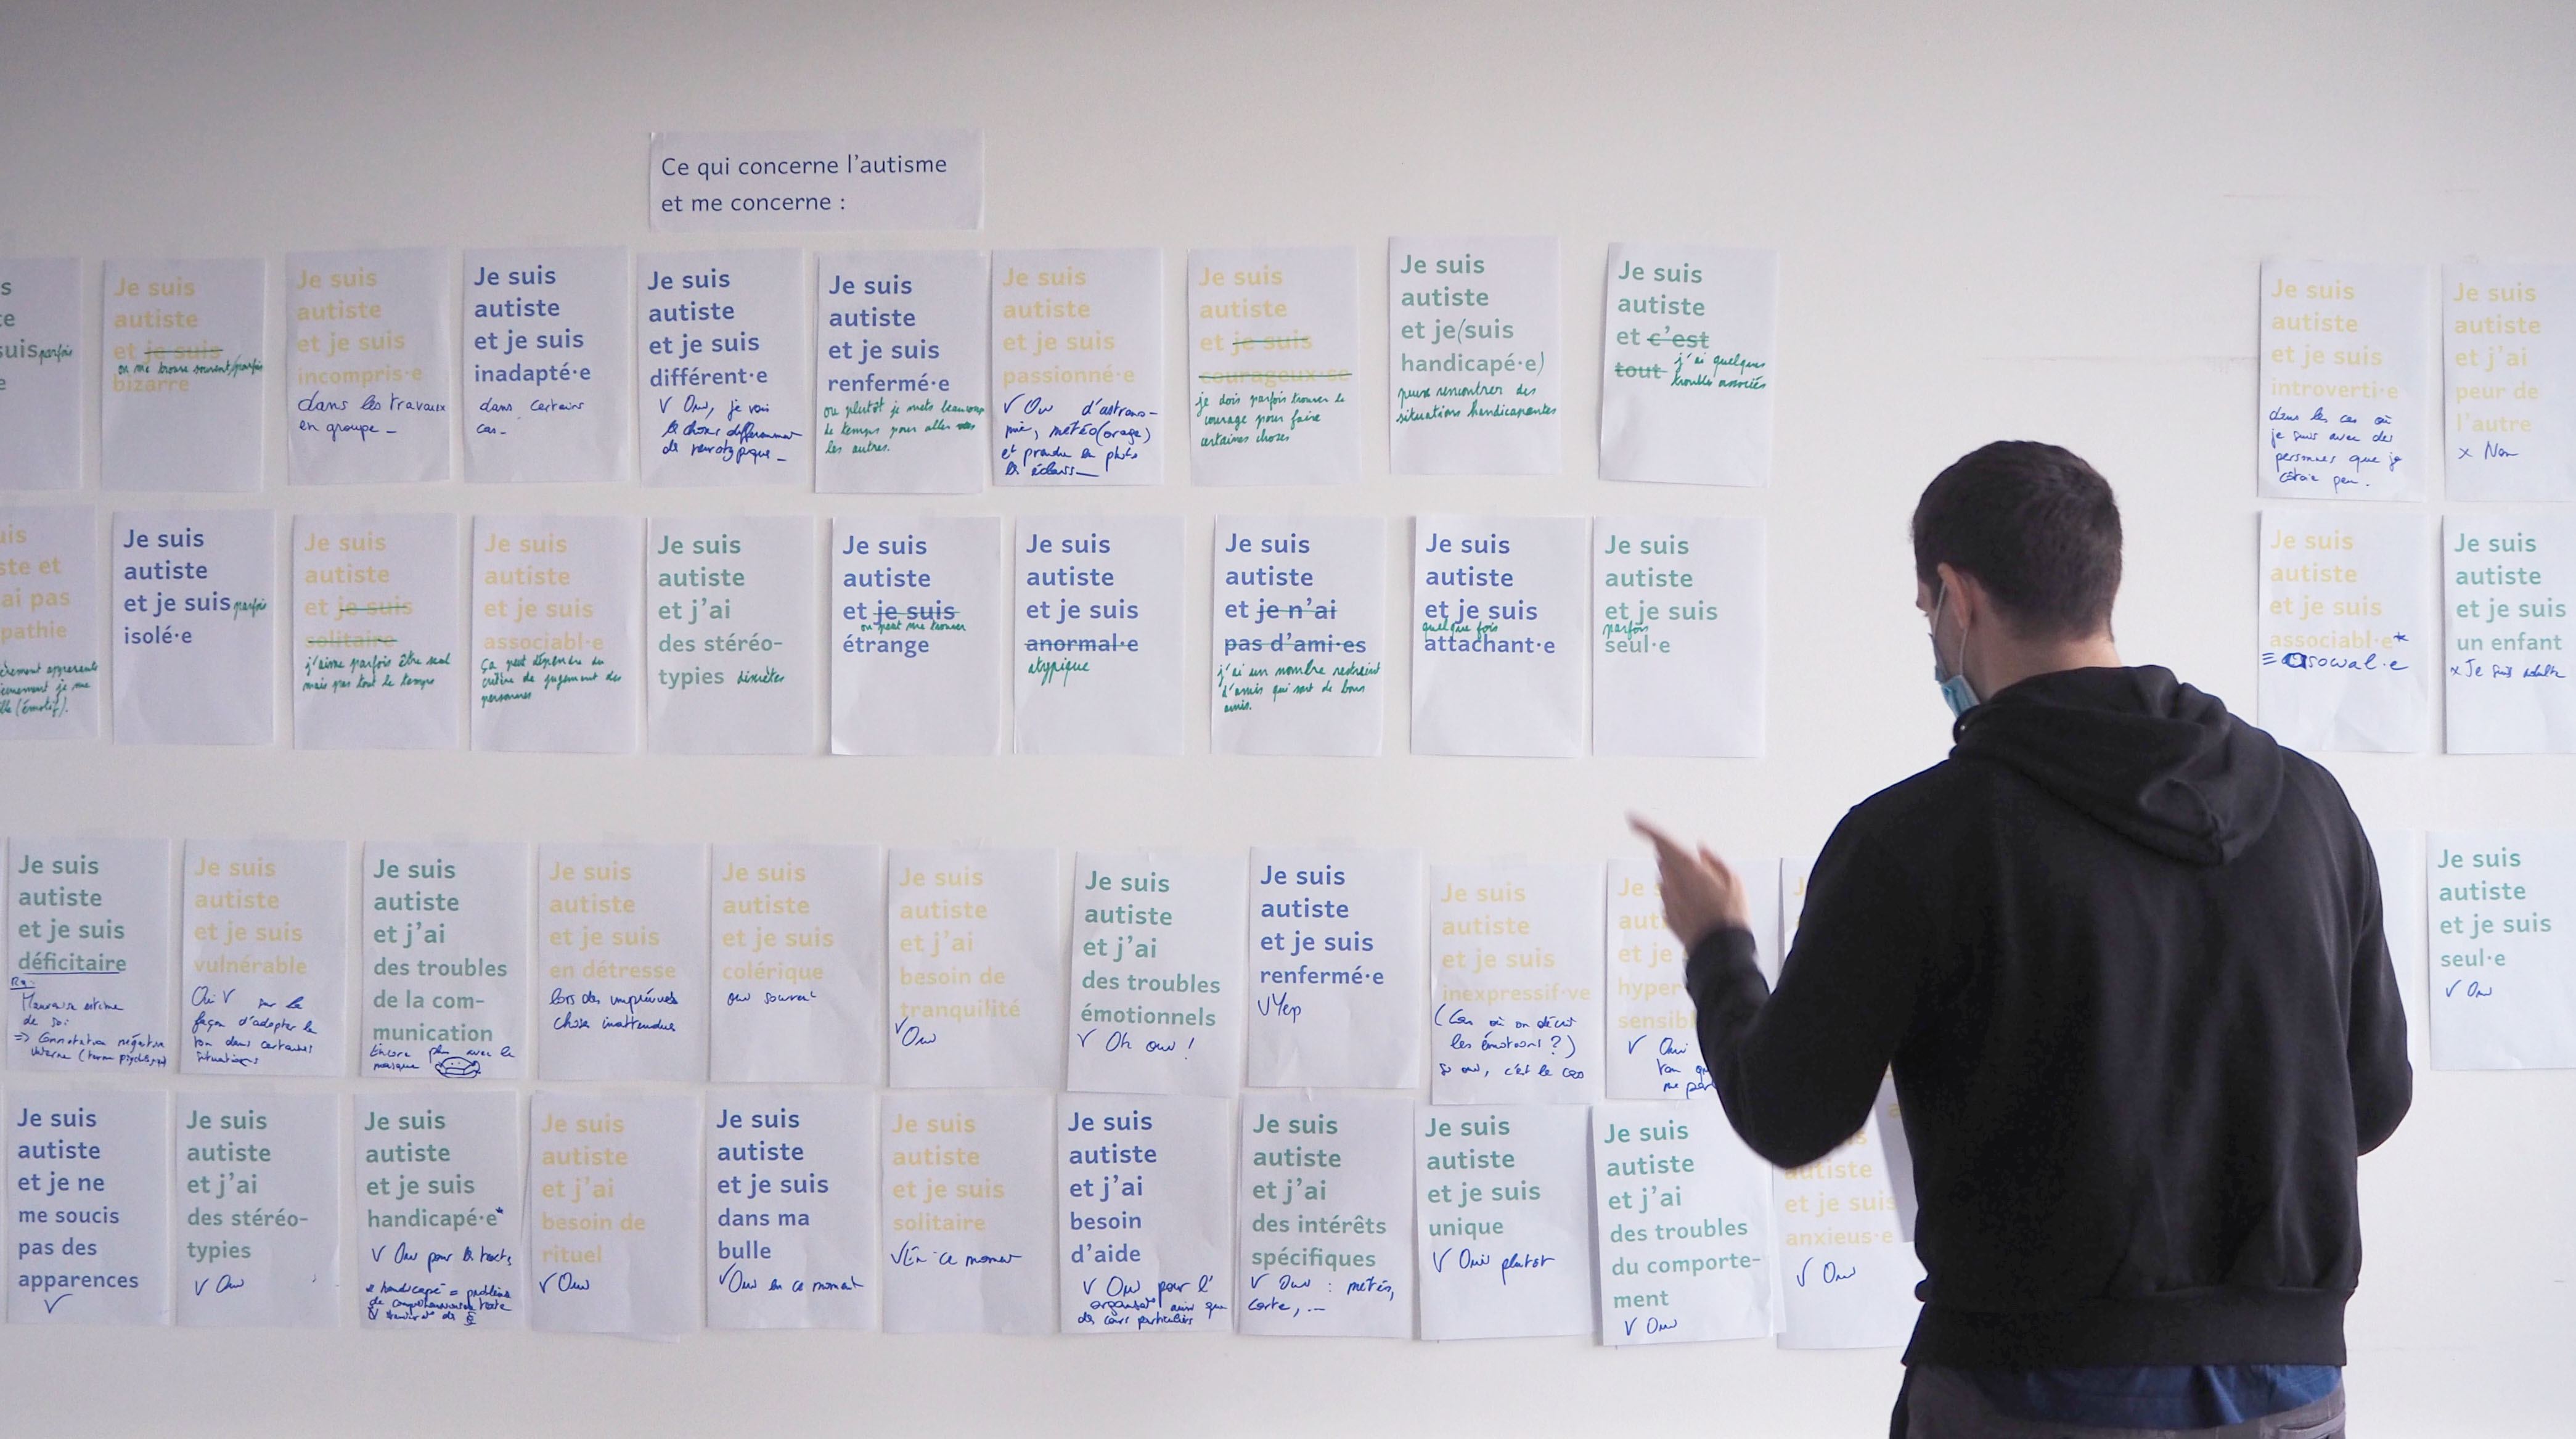 Ce qui concerne l'autisme
et me concerne :
s
te
suis parfois
e
Je suis
autiste
et je suis
on me trouve souvent/parfois
bizarre
Je suis
autiste
et je suis
incompris·e
dans les travaux
en groupe _
Je suis
autiste
et je suis
inadapté·e
dans certains
cas_
Je suis
autiste
et je suis
différent·e
V Oui, je vois
les choses différemment
de neurotypique_
Je suis
autiste
et je suis
renfermé·e
ou plutôt je mets beaucoup
de temps pour aller vers
les autres.
Je suis
autiste
et je suis
passionné·e
V Oui d'astrono-
mie, météo(orage)
et prendre en photo
les éclairs_
Je suis
autiste
et je suis
courageux·se
je dois parfois trouver le
courage pour faire
certaines choses
Je suis
autiste
et je(suis
handicapé·e)
peux rencontrer des
situations handicapantes
Je suis
autiste
et c'est
tout j'ai quelques
troubles associés
Je suis
autiste
et je suis
introverti·e
dans les cas où
je suis avec des
personnes que je
côtoie peu.
Je suis
autiste
et j'ai
peur de
l'autre
x Non
uis
ste et
ai pas
pathie
Je suis
autiste
et je suis parfois
isolé·e
Je suis
autiste
et je suis
solitaire
j'aime parfois être seul
mais pas tout le temps
Je suis
autiste
et je suis
associabl·e
ça peut dépendre du
critère de jugement des
personnes
Je suis
autiste
et j'ai
des stéréo-
typies discrètes
Je suis
autiste
et je suis
on peut me trouver
étrange
Je suis
autiste
et je suis
anormal·e
atypique
Je suis
autiste
et je n'ai
pas d'ami·es
j'ai un nombre restreint
d'amis qui sont de bons
amis.
Je suis
autiste
et je suis
quelque fois
attachant·e
Je suis
autiste
et je suis
parfois
seul·e
Je suis
autiste
et je suis
associabl·e*
Je suis
autiste
et je suis
un enfant
x Je suis adulte
Je suis
autiste
et je suis
déficitaire
Rq:
Mauvaise estime
de soi
=> Connotation négative
Je suis
autiste
et je suis
vulnérable
Oui V sur la
façon d'adapter le
ton dans certaines
situations
Je suis
autiste
et j'ai
des troubles
de la com-
munication
Encore plus avec le
masque
Je suis
autiste
et je suis
en détresse
lors des imprévues
chose inattendue
Je suis
autiste
et je suis
colérique
oui souvent
Je suis
autiste
et j'ai
besoin de
tranquilité
V Oui
Je suis
autiste
et j'ai
des troubles
émotionnels
V Oh oui !
Je suis
autiste
et je suis
renfermé·e
V Yep
Je suis
autiste
et je suis
inexpressif·ve
(Cas où on décrit
les émotions ?)
Si oui, c'est le cas
Je s
aut
et je
hyper
sensib
V Oui
Je suis
autiste
et je suis
seul·e
V Oui
Je suis
autiste
et je ne
me soucis
pas des
apparences
V
Je suis
autiste
et j'ai
des stéréo-
typies
V Oui
Je suis
autiste
et je suis
handicapé·e*
V Oui pour les textes
* handicapé = problème
de compréhension de texte
Je suis
autiste
et j'ai
besoin de
rituel
V Oui
Je suis
autiste
et je suis
dans ma
bulle
V Oui en ce moment
Je suis
autiste
et je suis
solitaire
V En ce moment
Je suis
autiste
et j'ai
besoin
d'aide
V Oui pour l'
organisat° ainsi que
des cours particuliers
Je suis
autiste
et j'ai
des intérêts
spécifiques
V Oui : météo,
carte, ...
Je suis
autiste
et je suis
unique
V Oui plutôt
Je suis
autiste
et j'ai
des troubles
du comporte-
ment
V Oui
autiste
et je suis
anxieus·e
V Oui